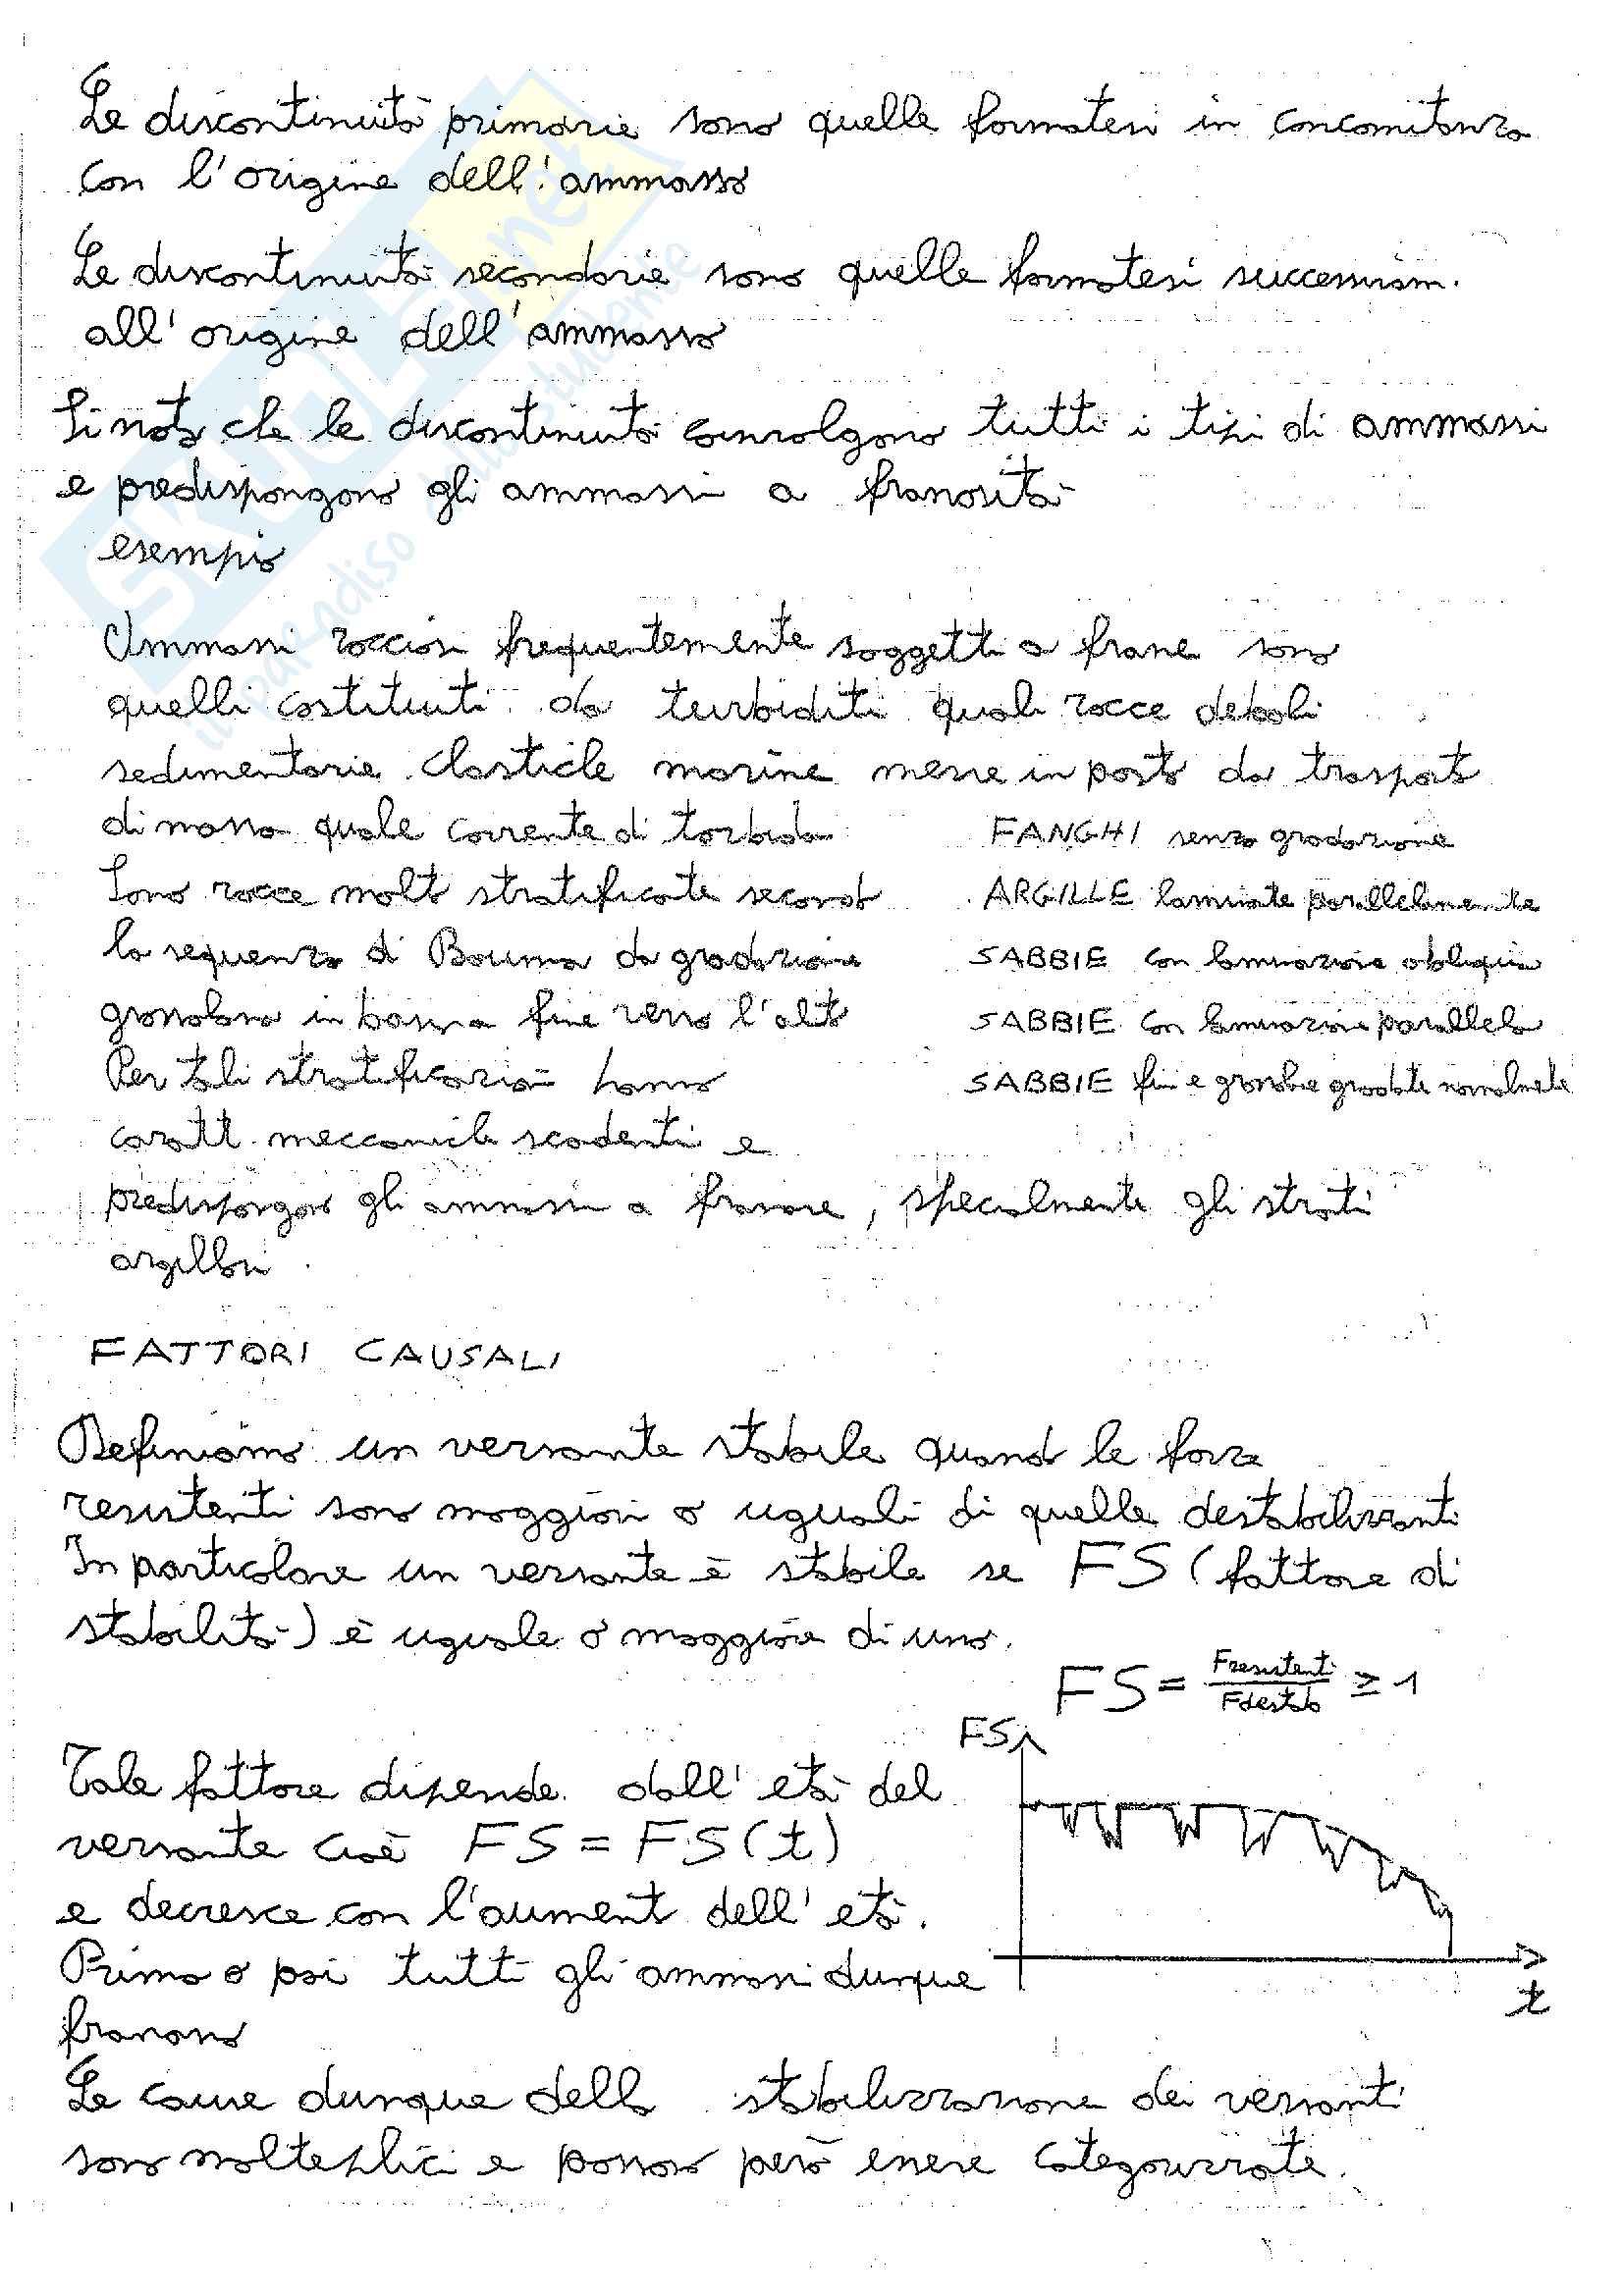 Le discontinuità primarie sono quelle formatesi in concomitanza
con l'origine dell'ammasso
Le discontinuità secondarie sono quelle formatesi successivam.
all'origine dell'ammasso
Si nota che le discontinuità coinvolgono tutti i tipi di ammassi
e predispongono gli ammassi a franosità
esempio
Ammassi rocciosi frequentemente soggetti a frane sono
quelli costituiti da turbiditi quali rocce deboli
sedimentarie clastiche marine messe in posto da trasporto
di massa quale corrente di torbida
FANGHI senza gradazione
Sono rocce molto stratificate secondo
ARGILLE laminate parallelamente
la sequenza di Bouma da gradazione
SABBIE con laminazione obliqua
grossolana in bassa a fine verso l'alto
SABBIE con laminazione parallela
Per tali stratificazioni hanno
SABBIE fini e grossolane gradate normalmente
caratt. meccaniche scadenti e
predispongono gli ammassi a franare, specialmente gli strati
argillosi
FATTORI CAUSALI
Definiamo un versante stabile quando le forze
resistenti sono maggiori o uguali di quelle destabilizzanti
In particolare un versante è stabile se FS (fattore di
stabilità) è uguale o maggiore di uno.
FS = Fresistenti / Fdestab ≥ 1
FS
Tale fattore dipende dall'età del
versante cioè FS = FS(t)
e decresce con l'aumento dell'età.
Prima o poi tutti gli ammassi dunque
t
franano
Le cause dunque della stabilizzazione dei versanti
sono molteplici e possono però essere categorizzate.
SKUOLA.net
il paradiso dello studente